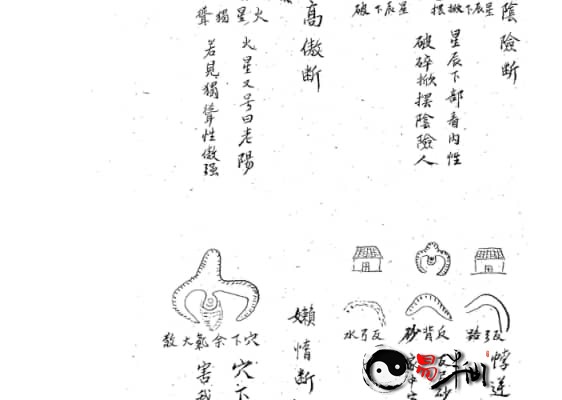 陰險斷
星辰下掀擺
星辰下破
星辰下部看內性
破碎掀擺陰險人
高傲斷
火星獨聳
火星又号曰老陽
若見獨聳性傲强
悖逆
反弓路
反背砂
反弓水
嬾惰斷
穴下余氣大散
穴下
害我
易